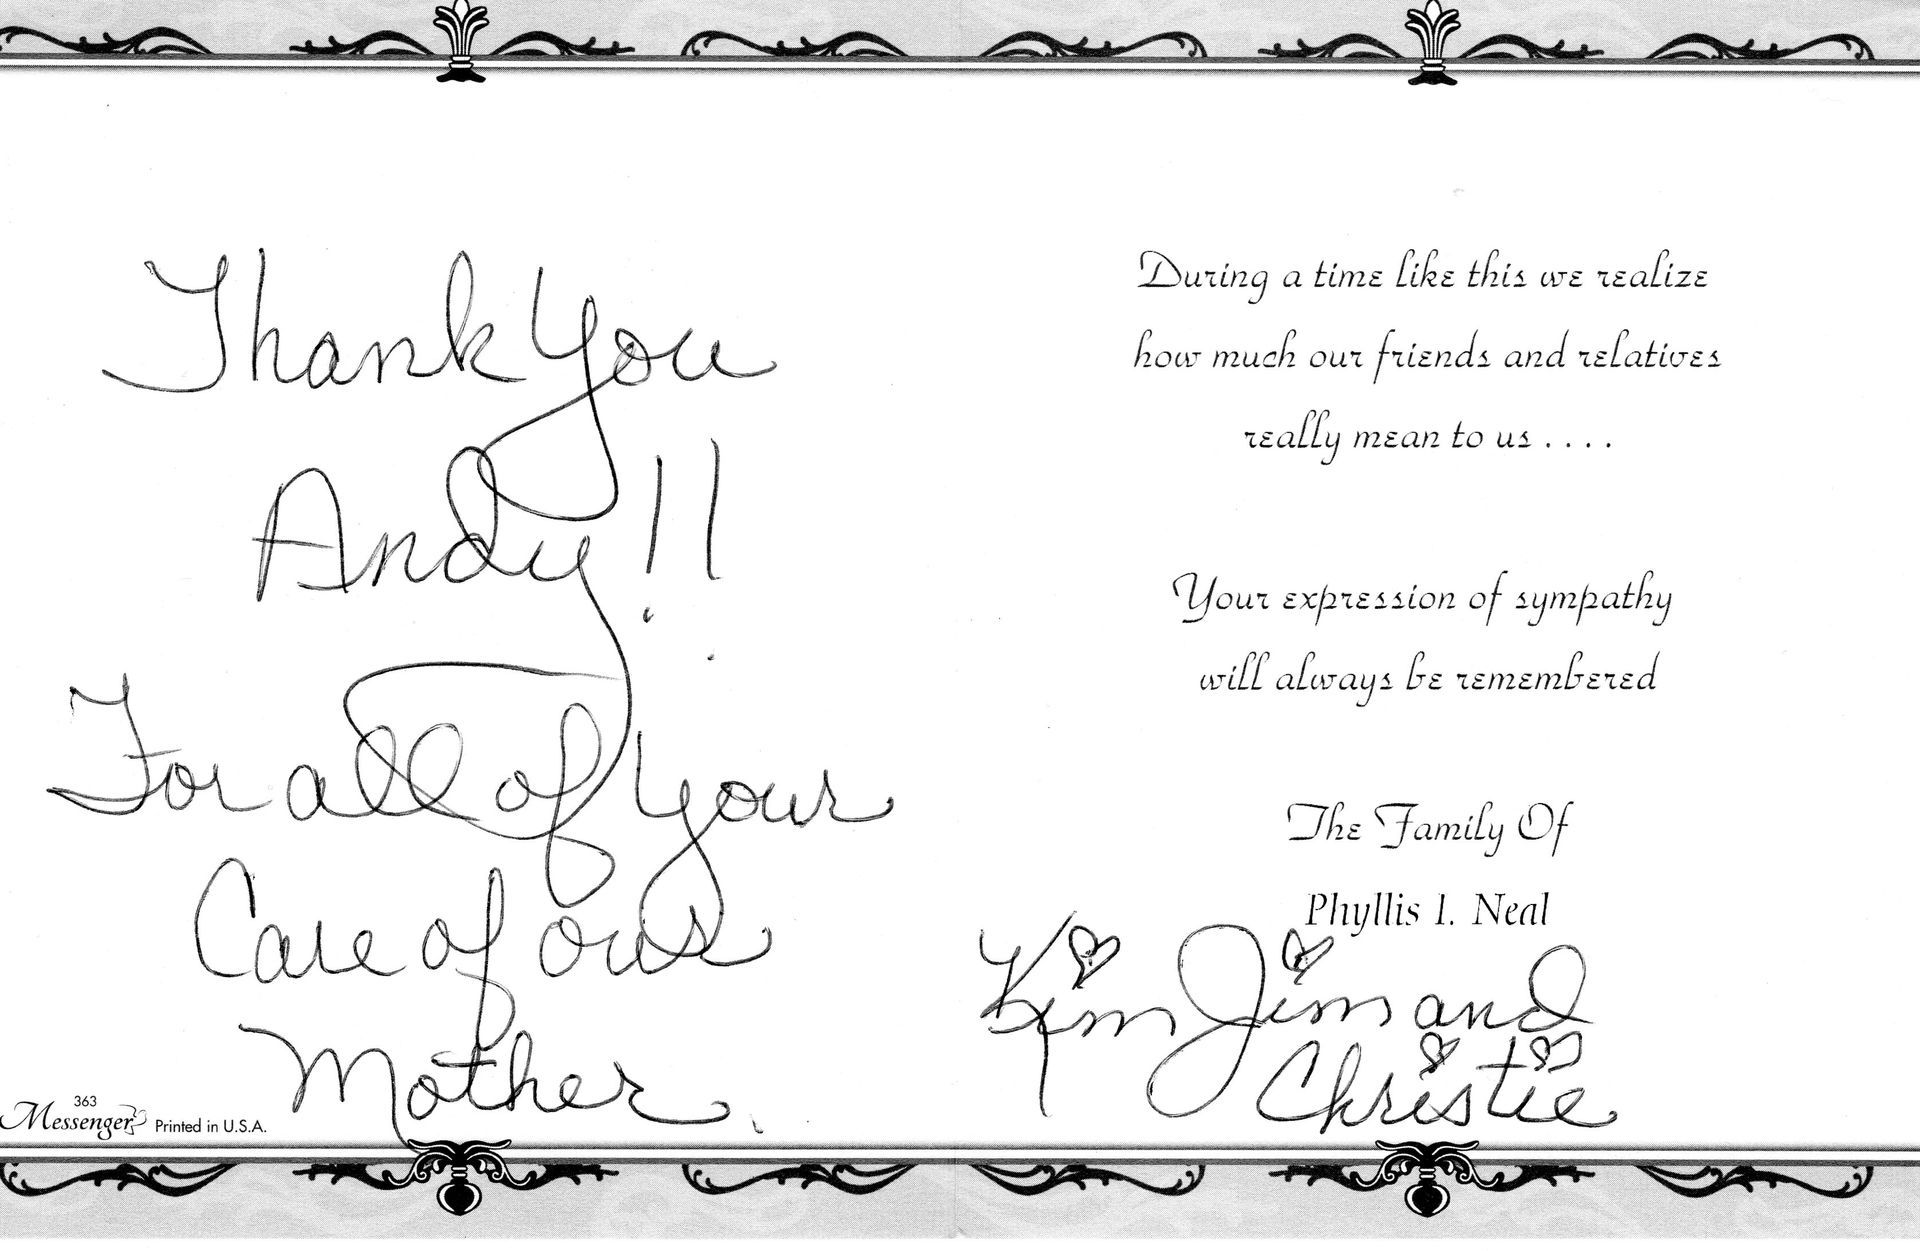 Thank You
Andy!!
For all of your
Care of our
Mother.
363
Messenger Printed in U.S.A.
During a time like this we realize
how much our friends and relatives
really mean to us . . . .
Your expression of sympathy
will always be remembered
The Family Of
Phyllis I. Neal
Kim Jim and
Christie